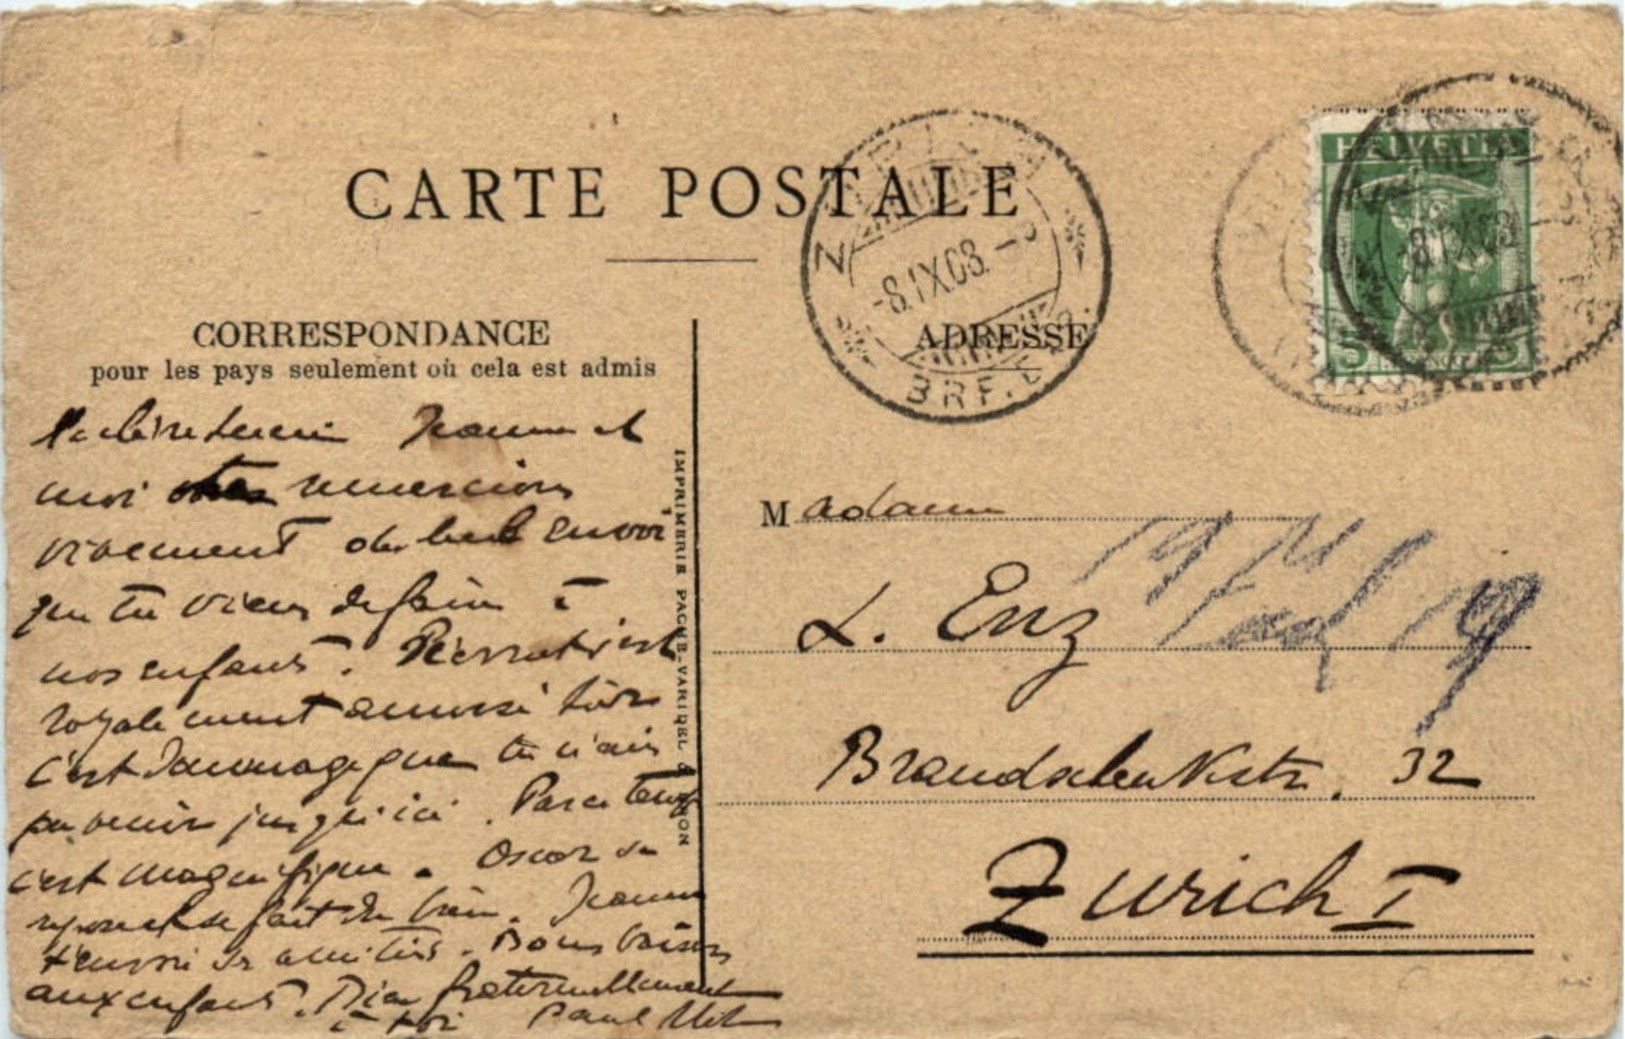 CARTE POSTALE
CORRESPONDANCE
pour les pays seulement où cela est admis
ADRESSE
ZÜRICH
-8.IX.08.-
BRF.
HELVETIA
5
-8.IX.08
IMPRIMERIE PACHE-VARIDEL & BRON
Jeanne et
moi remercions
vivement envoi
que tu viens de faire à
nos enfants.
royalement
c'est dommage que tu n'ais
pu venir jusqu'ici. Par ce temps
c'est magnifique. Oscar se
repose et se fait du bien. Jeanne
t'envoie ses amitiés. Bons baisers
aux enfants. Bien fraternellement
à toi Paul
Madame
L. Enz
Brandschenkestr. 32
Zurich I